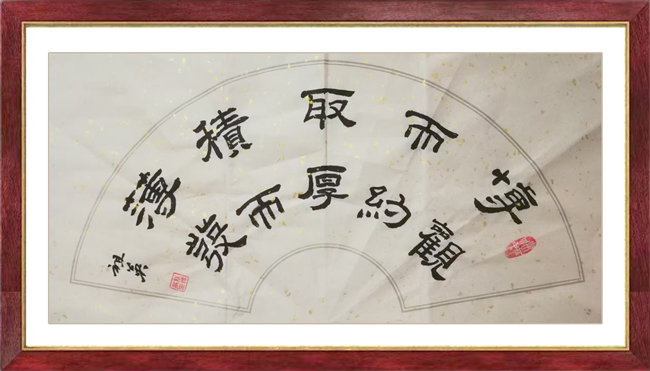 博觀
而約
取厚
積而
薄發
祖英